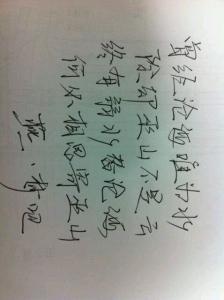 曾经沧海难为水
除却巫山不是云
终有弱水替沧海
何以相思寄巫山